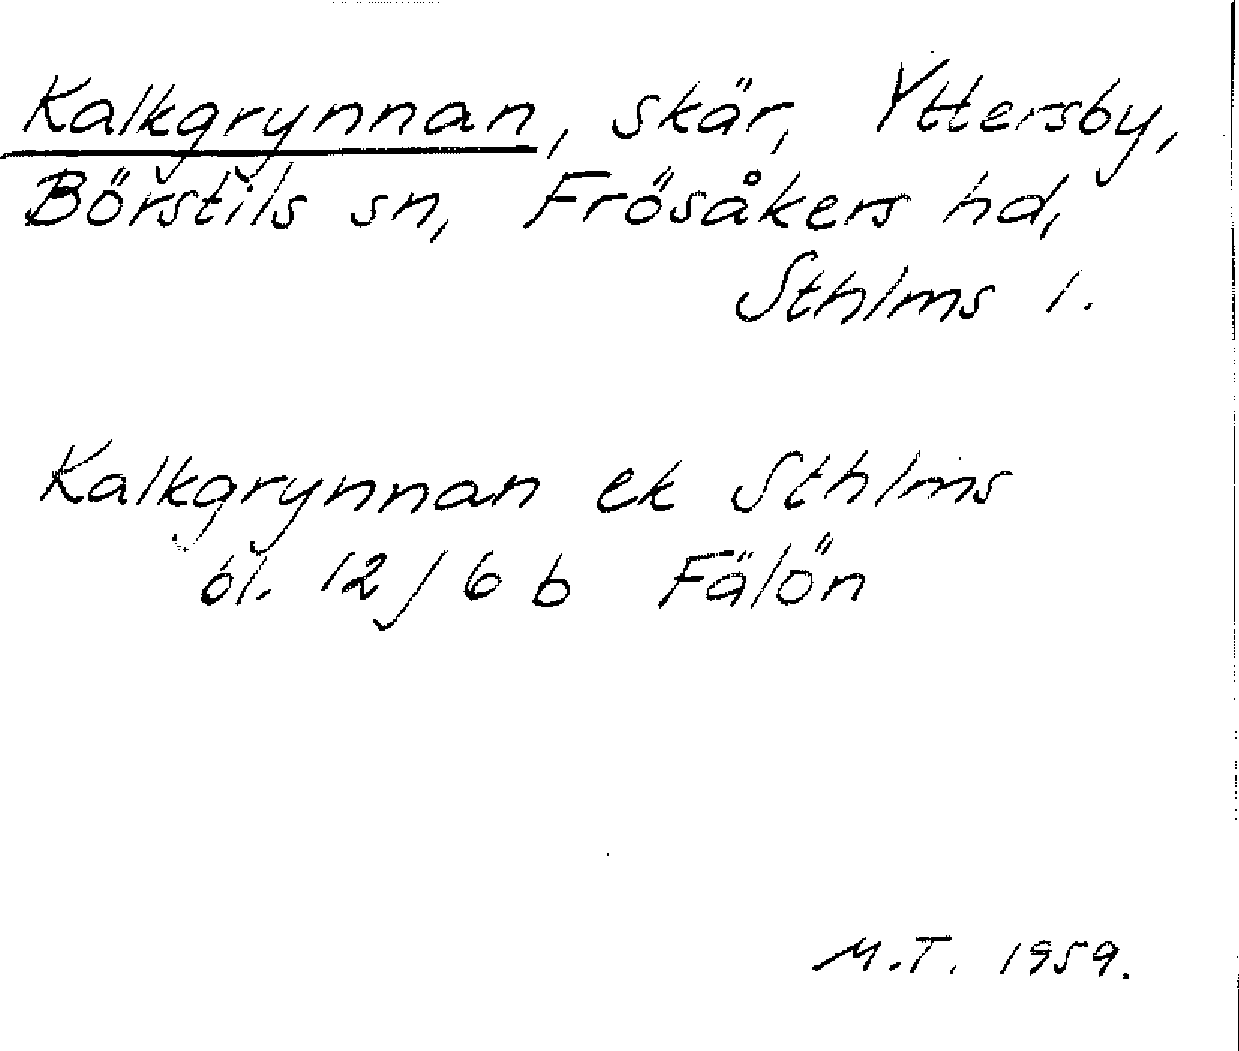 Kalkgrynnan, skär, Yttersby,
Börstils sn, Frösåkers hd,
Sthlms l.
Kalkgrynnan ek Sthlms
bl. 12/6 b Fälön
M.T. 1959.